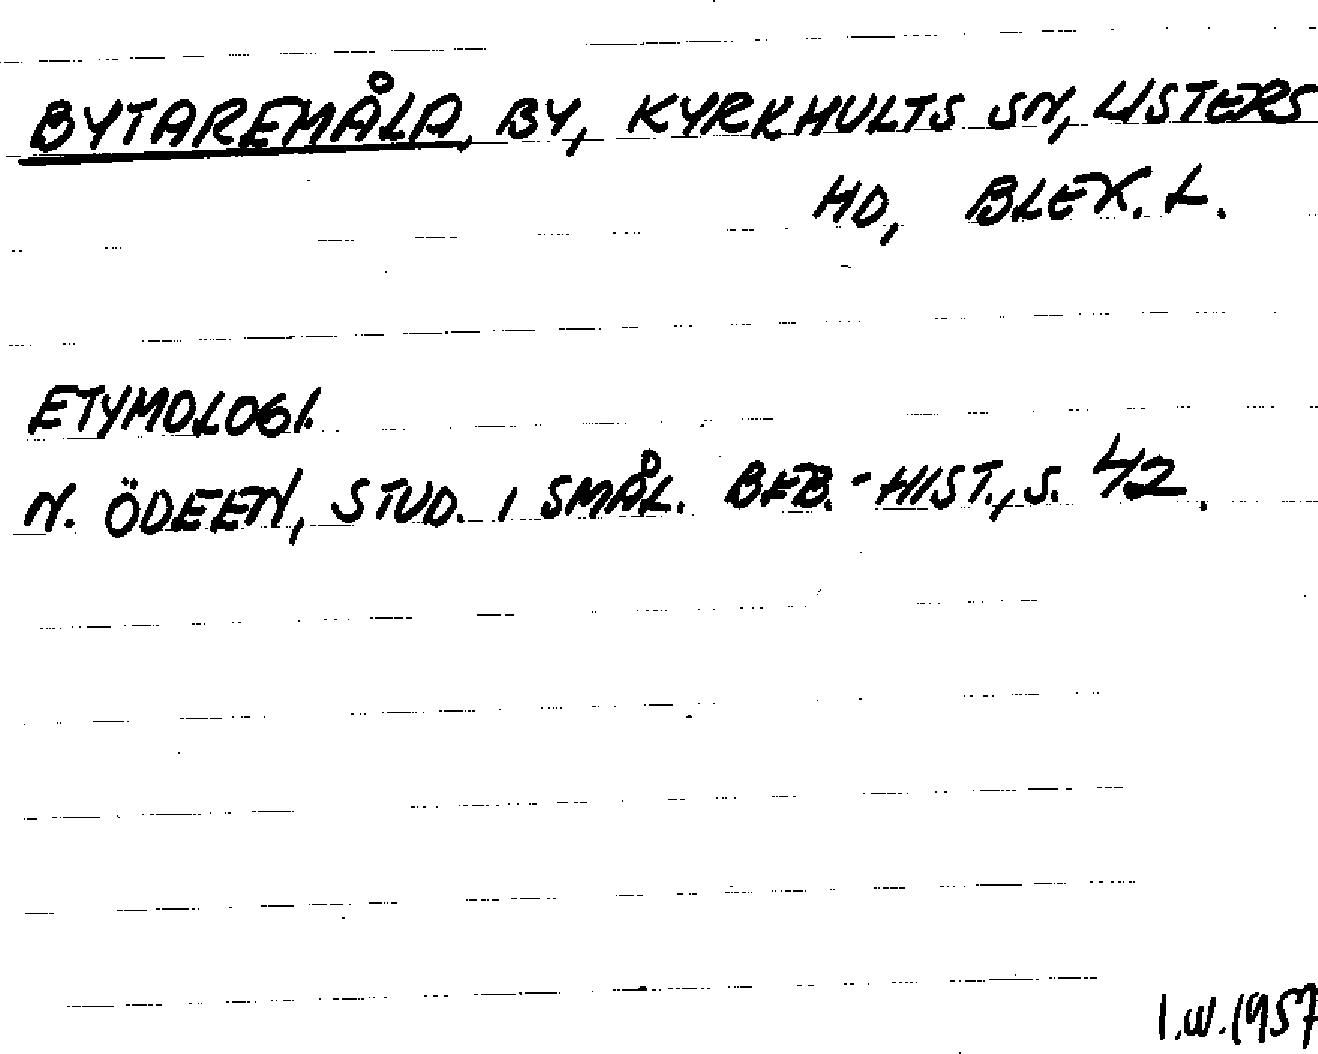 BYTAREMÅLA, BY, KYRKHULTS SN, LISTERS
HD, BLEK. L.
ETYMOLOGI.
N. ÖDEEN, STUD. I SMÅL. BEB.-HIST., S. 42.
I.W. 1957